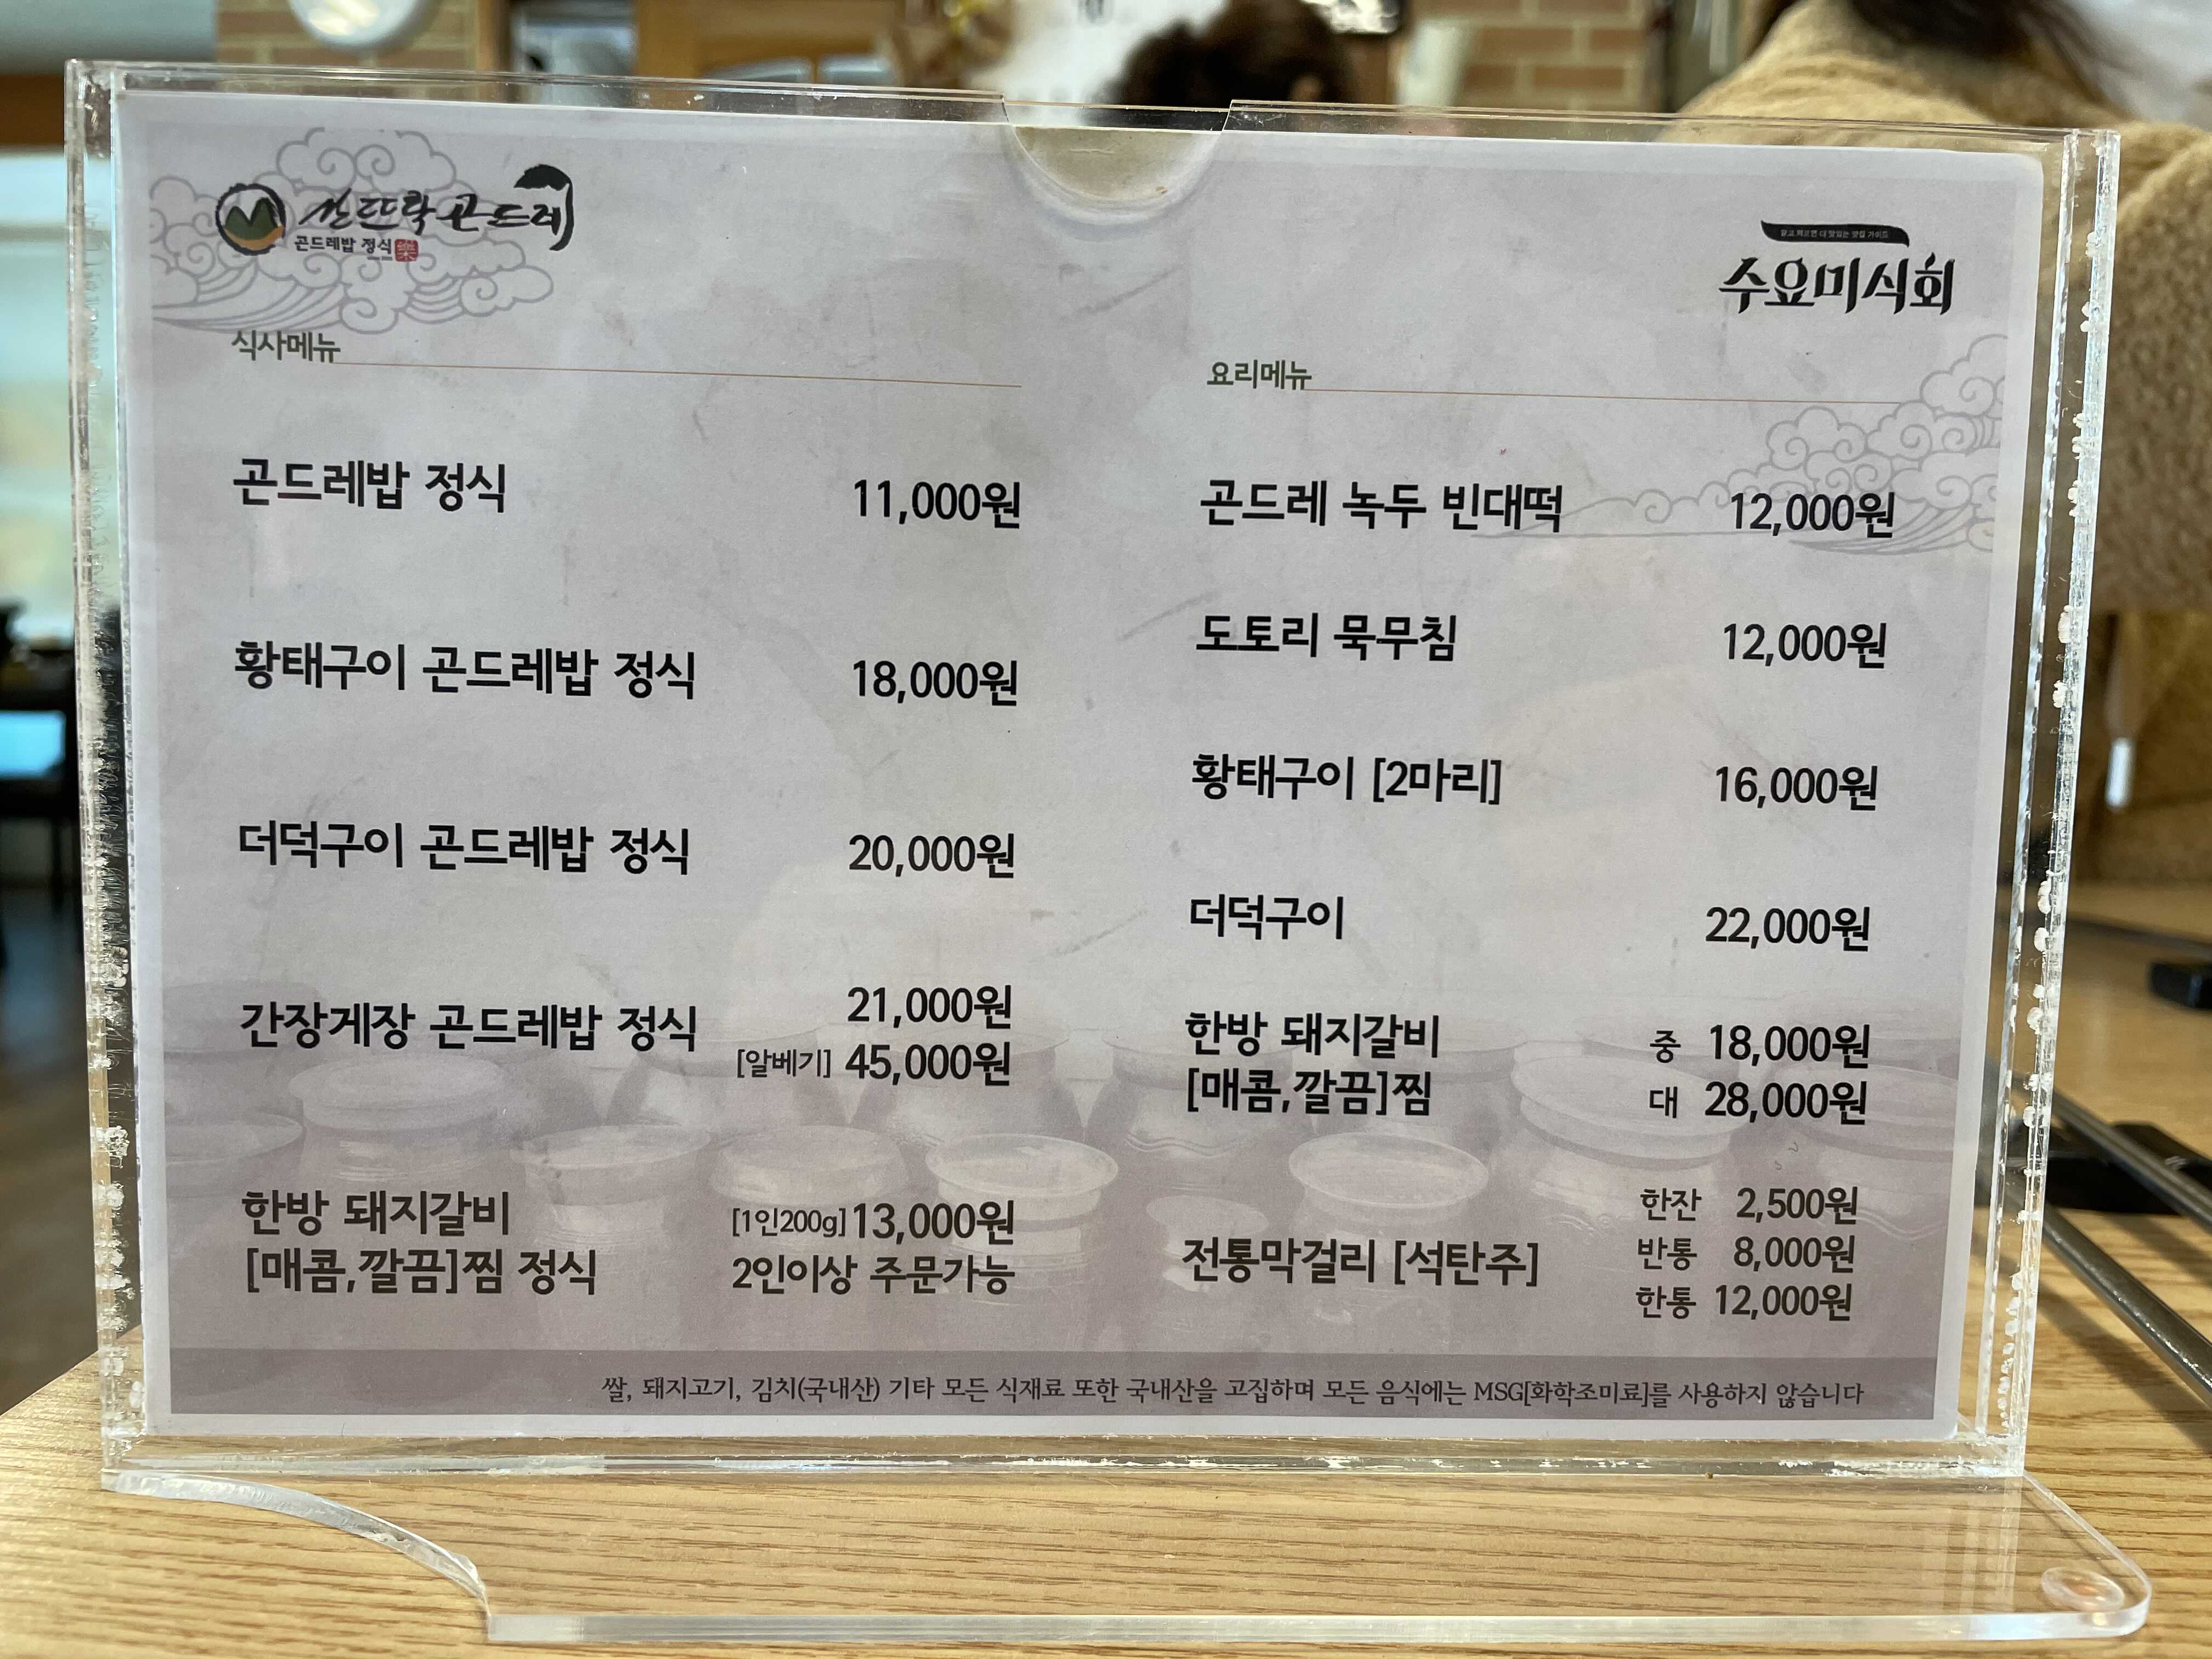 산뜨락 곤드레
곤드레밥 정식
수요미식회
식사메뉴
곤드레밥 정식 11,000원
황태구이 곤드레밥 정식 18,000원
더덕구이 곤드레밥 정식 20,000원
간장게장 곤드레밥 정식 21,000원
[알베기] 45,000원
한방 돼지갈비 [1인200g]13,000원
[매콤,깔끔]찜 정식 2인이상 주문가능
요리메뉴
곤드레 녹두 빈대떡 12,000원
도토리 묵무침 12,000원
황태구이 [2마리] 16,000원
더덕구이 22,000원
한방 돼지갈비 중 18,000원
[매콤,깔끔]찜 대 28,000원
한잔 2,500원
전통막걸리 [석탄주] 반통 8,000원
한통 12,000원
쌀, 돼지고기, 김치(국내산) 기타 모든 식재료 또한 국내산을 고집하며 모든 음식에는 MSG[화학조미료]를 사용하지 않습니다